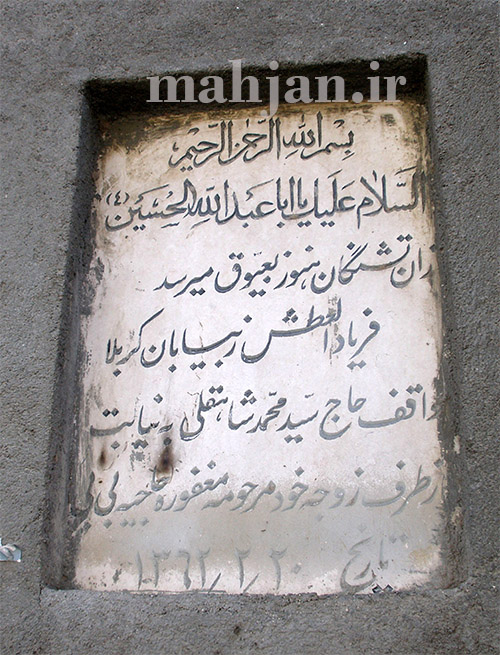 mahjan.ir
بسم الله الرحمن الرحیم
السلام علیک یا ابا عبدالله الحسین (ع)
زان تشنگان هنوز بعیوق میرسد
فریاد العطش ز بیابان کربلا
واقف حاج سید محمد شاهتقلی به نیابت
از طرف زوجه خود مرحومه مغفوره حاجیه بی بی
تاریخ ۱۳۶۲٫۲٫۲۰